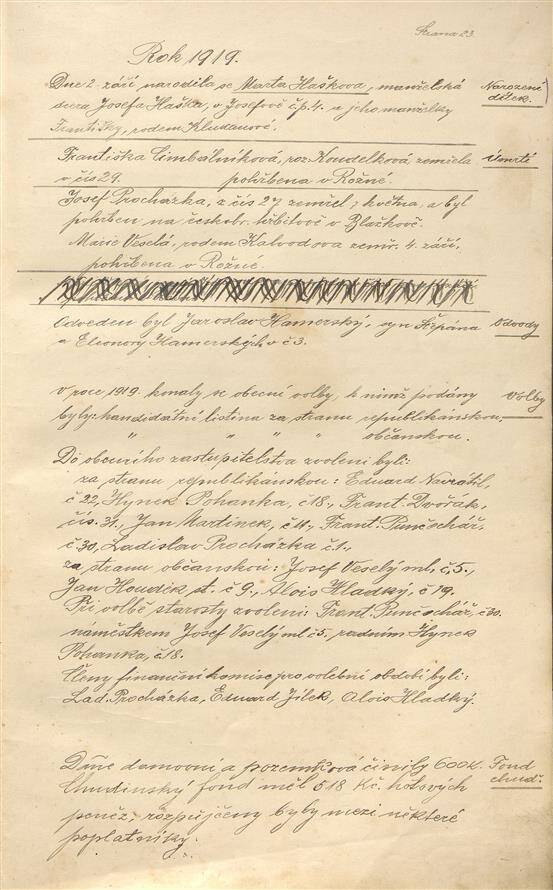 Strana 23.
Rok 1919.
Dne 2. září narodila se Marta Haškova, manželská
dcera Josefa Haška, v Josefově č.p. 4. a jeho manželky
Františky, rodem
Narozené
dítek.
Františka Cimbálníková, roz. Koudelková, zemřela
v čís 29. pohřbena v Rožné.
Úmrtí
Josef Procházka, z čís 27 zemřel, května, a byl
pohřben, na českobr. hřbitově v Blažkově.
Marie Veselá, rodem Kalvodova zemř. 4. září,
pohřbena v Rožné.
Odveden byl Jaroslav Hamerský, syn Štěpána
a Eleonory Hamerských v č 3.
Odvody
V roce 1919. konaly se obecní volby, k nimž podány
byly: kandidátní listina za stranu republikánskou,
" " " " občanskou.
Volby
Do obecního zastupitelstva zvoleni byli:
za stranu republikánskou: Eduard Navrátil,
č 22, Hynek Pohanka, č 18., Frant. Dvořák,
čís. 31, Jan Martinek, č 11., Frant. Punčochář,
č 30, Ladislav Procházka č 1.,
za stranu občanskou: Josef Veselý ml. č. 5.,
Jan Houdek, st. č 9., Alois Hladký, č 19.
Při volbě starosty zvoleni: Frant. Punčochář, č 30.
náměstkem Josef Veselý ml č 5., radním Hynek
Pohanka, č 18.
Členy finanční komise pro volební období byli:
Lad. Procházka, Eduard Jílek, Alois Hladký.
domovní a pozemková činily 600 K.
Chudinský fond měl 518 Kč. hotových
peněz, rozpůjčeny byly mezi některé
poplatníky.
Fond
chud.